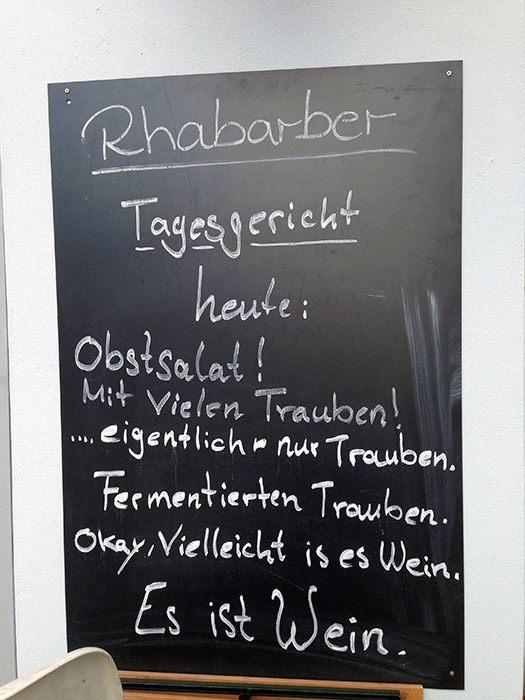 Rhabarber
Tagesgericht
heute:
Obstsalat!
Mit Vielen Trauben!
.... eigentlich - nur Trauben.
Fermentierten Trauben.
Okay, Vielleicht is es Wein.
Es ist Wein.